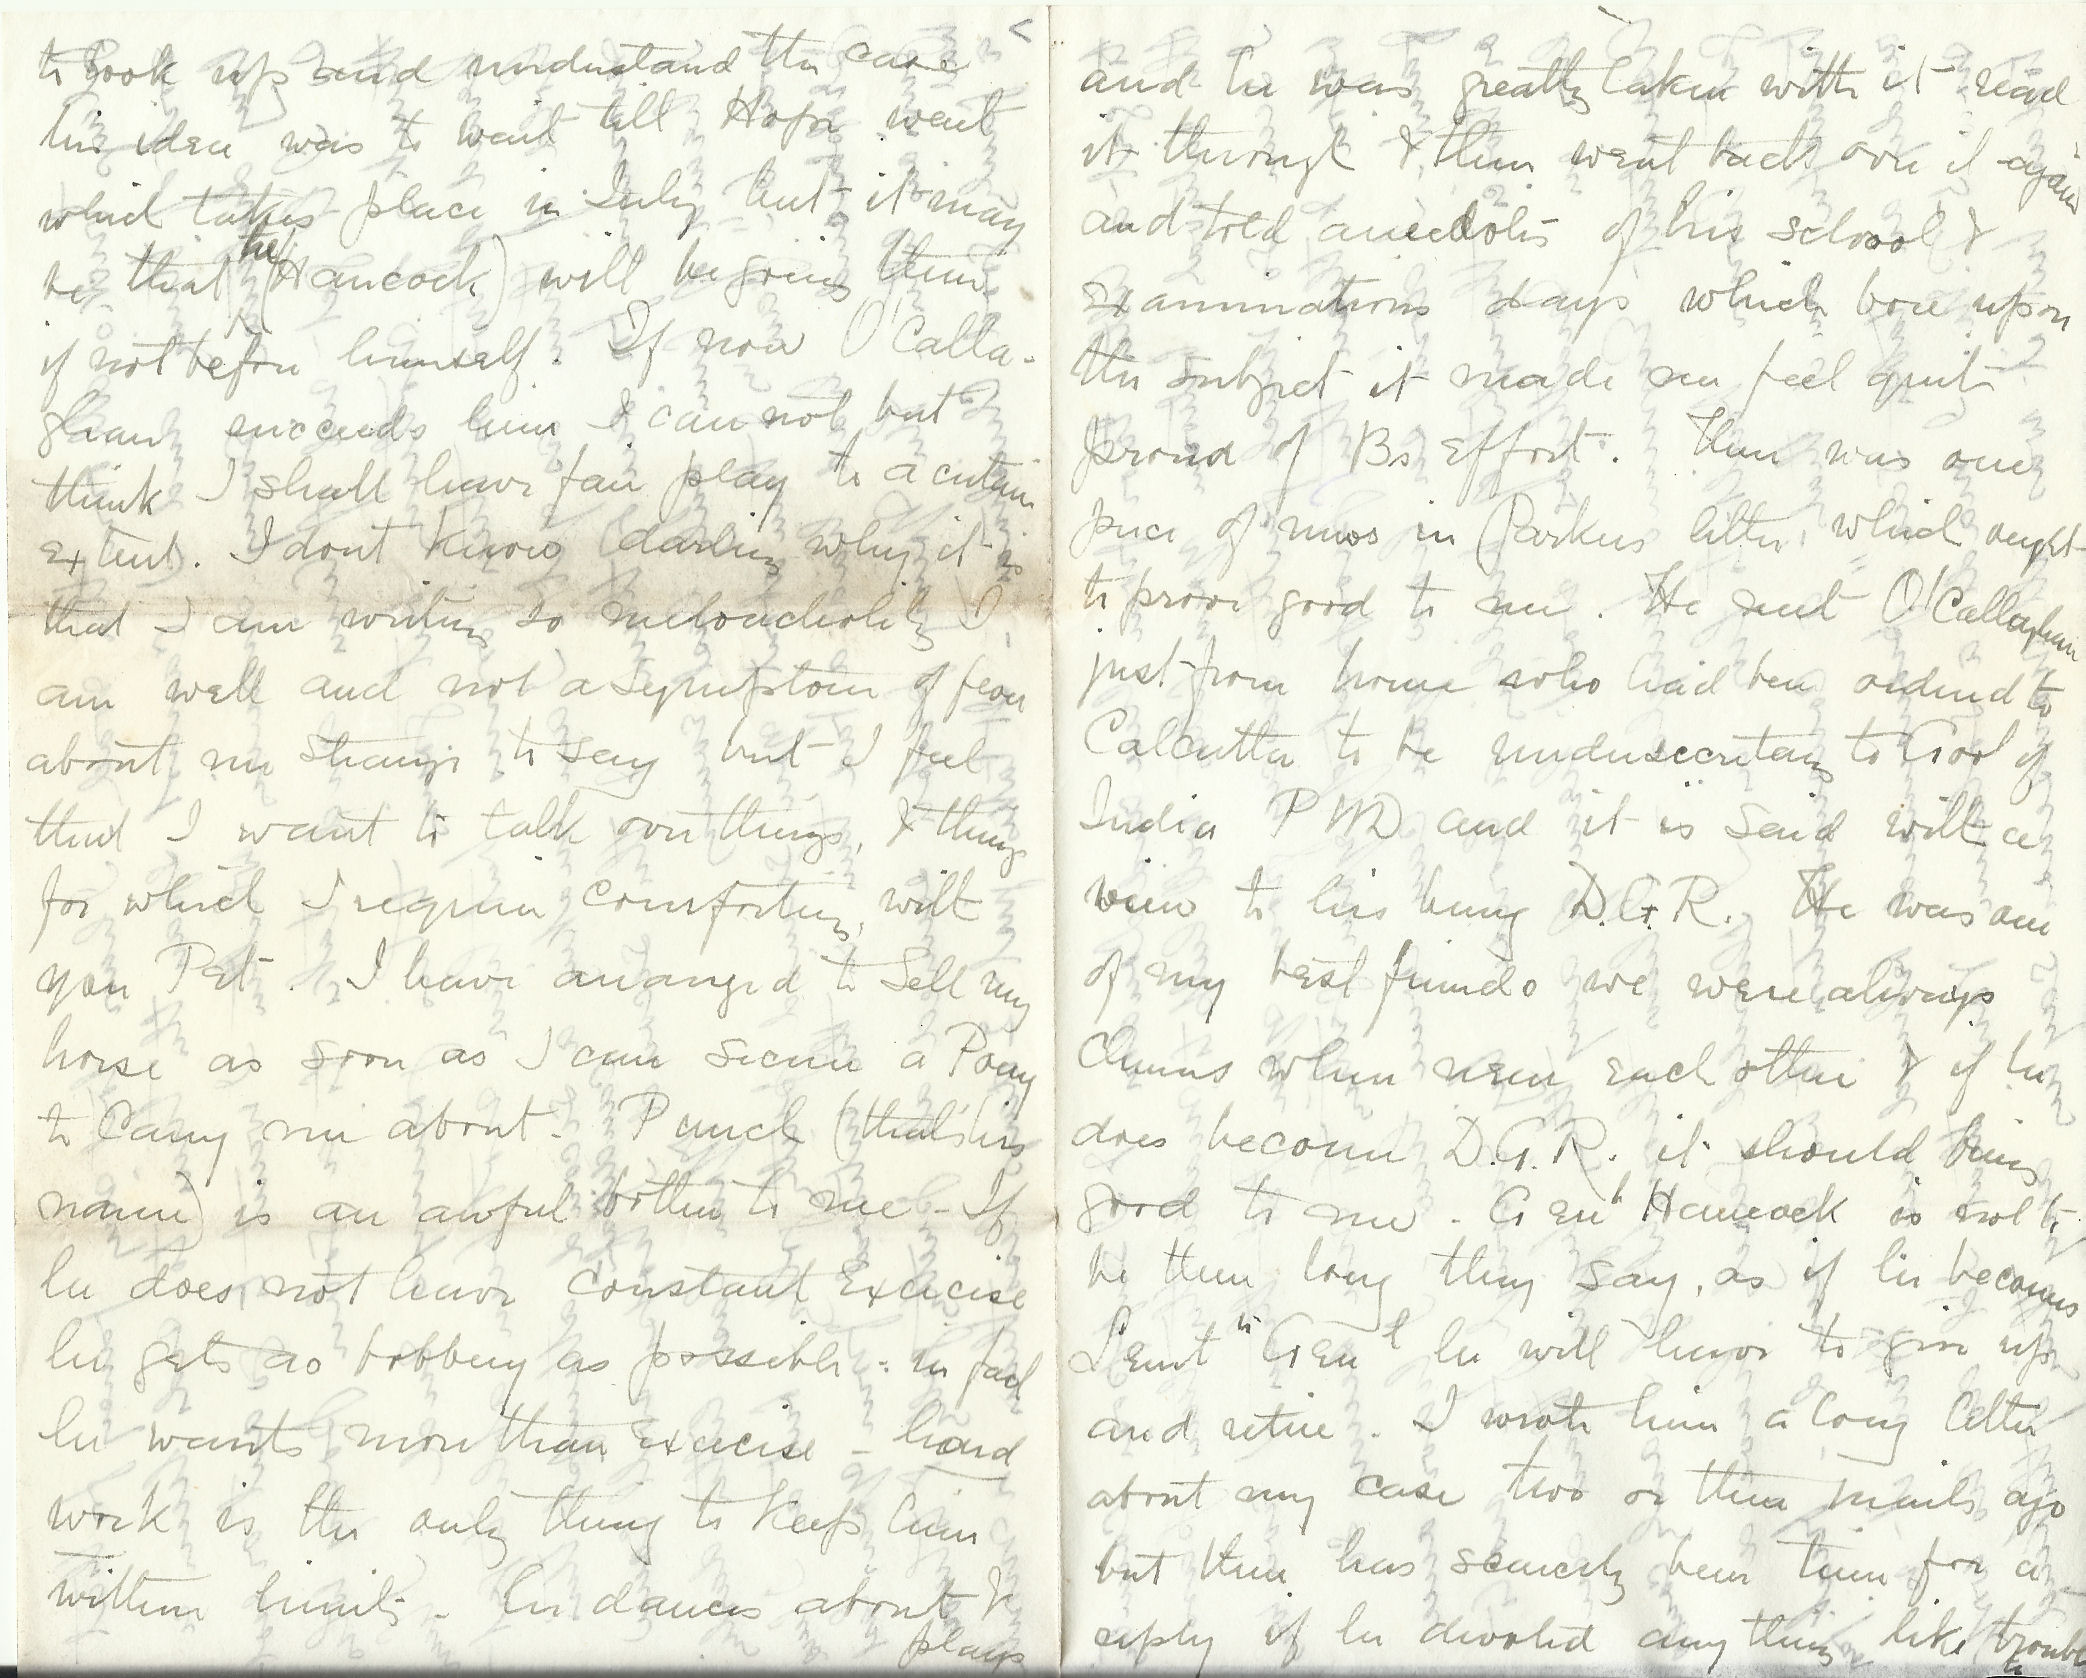 to look up and understand the case
his idea was to wait till Hope went
which takes place in July but it may
be that he (Hancock) will be going then
if not before himself. If now O'Calla-
ghan succeeds him I can not but
think I shall have fair play to a certain
extent. I dont know darling why it is
that I am writing so meloncholily I
am well and not a symptom of fever
about me strange to say but I feel
that I want to talk over things, & things
for which I require comforting, with
you Pet. I have arranged to sell my
horse as soon as I can secure a Pony
to carry me about. Punch (thats his
name) is an awful bother to me - If
he does not have constant Exercise
he gets as bobbery as possible - in fact
he wants more than Exercise - hard
work is the only thing to keep him
within limits - he dances about &
plays
and he was greatly taken with it read
it through & then went back over it again
and told anecdotes of his school &
Examinations days which bore upon
the subject it made me feel quite
proud of Bs Effort. There was one
piece of news in Parkers letter which ought
to prove good to me. He met O'Callaghan
just from home who had been ordered to
Calcutta to be undersecretary to Govt of
India PWD and it is said with a
view to his being D.G.R. He was one
of my best friends we were always
chums when near each other & if he
does become D.G.R. it should bring
good to me - Genl Hancock is not to
be there long they say, as if he becomes
Leut Genl he will have to give up
and retire. I wrote him a long letter
about my case two or three mails ago
but there has scarcely been time for a
reply if he devoted anything like trouble
to